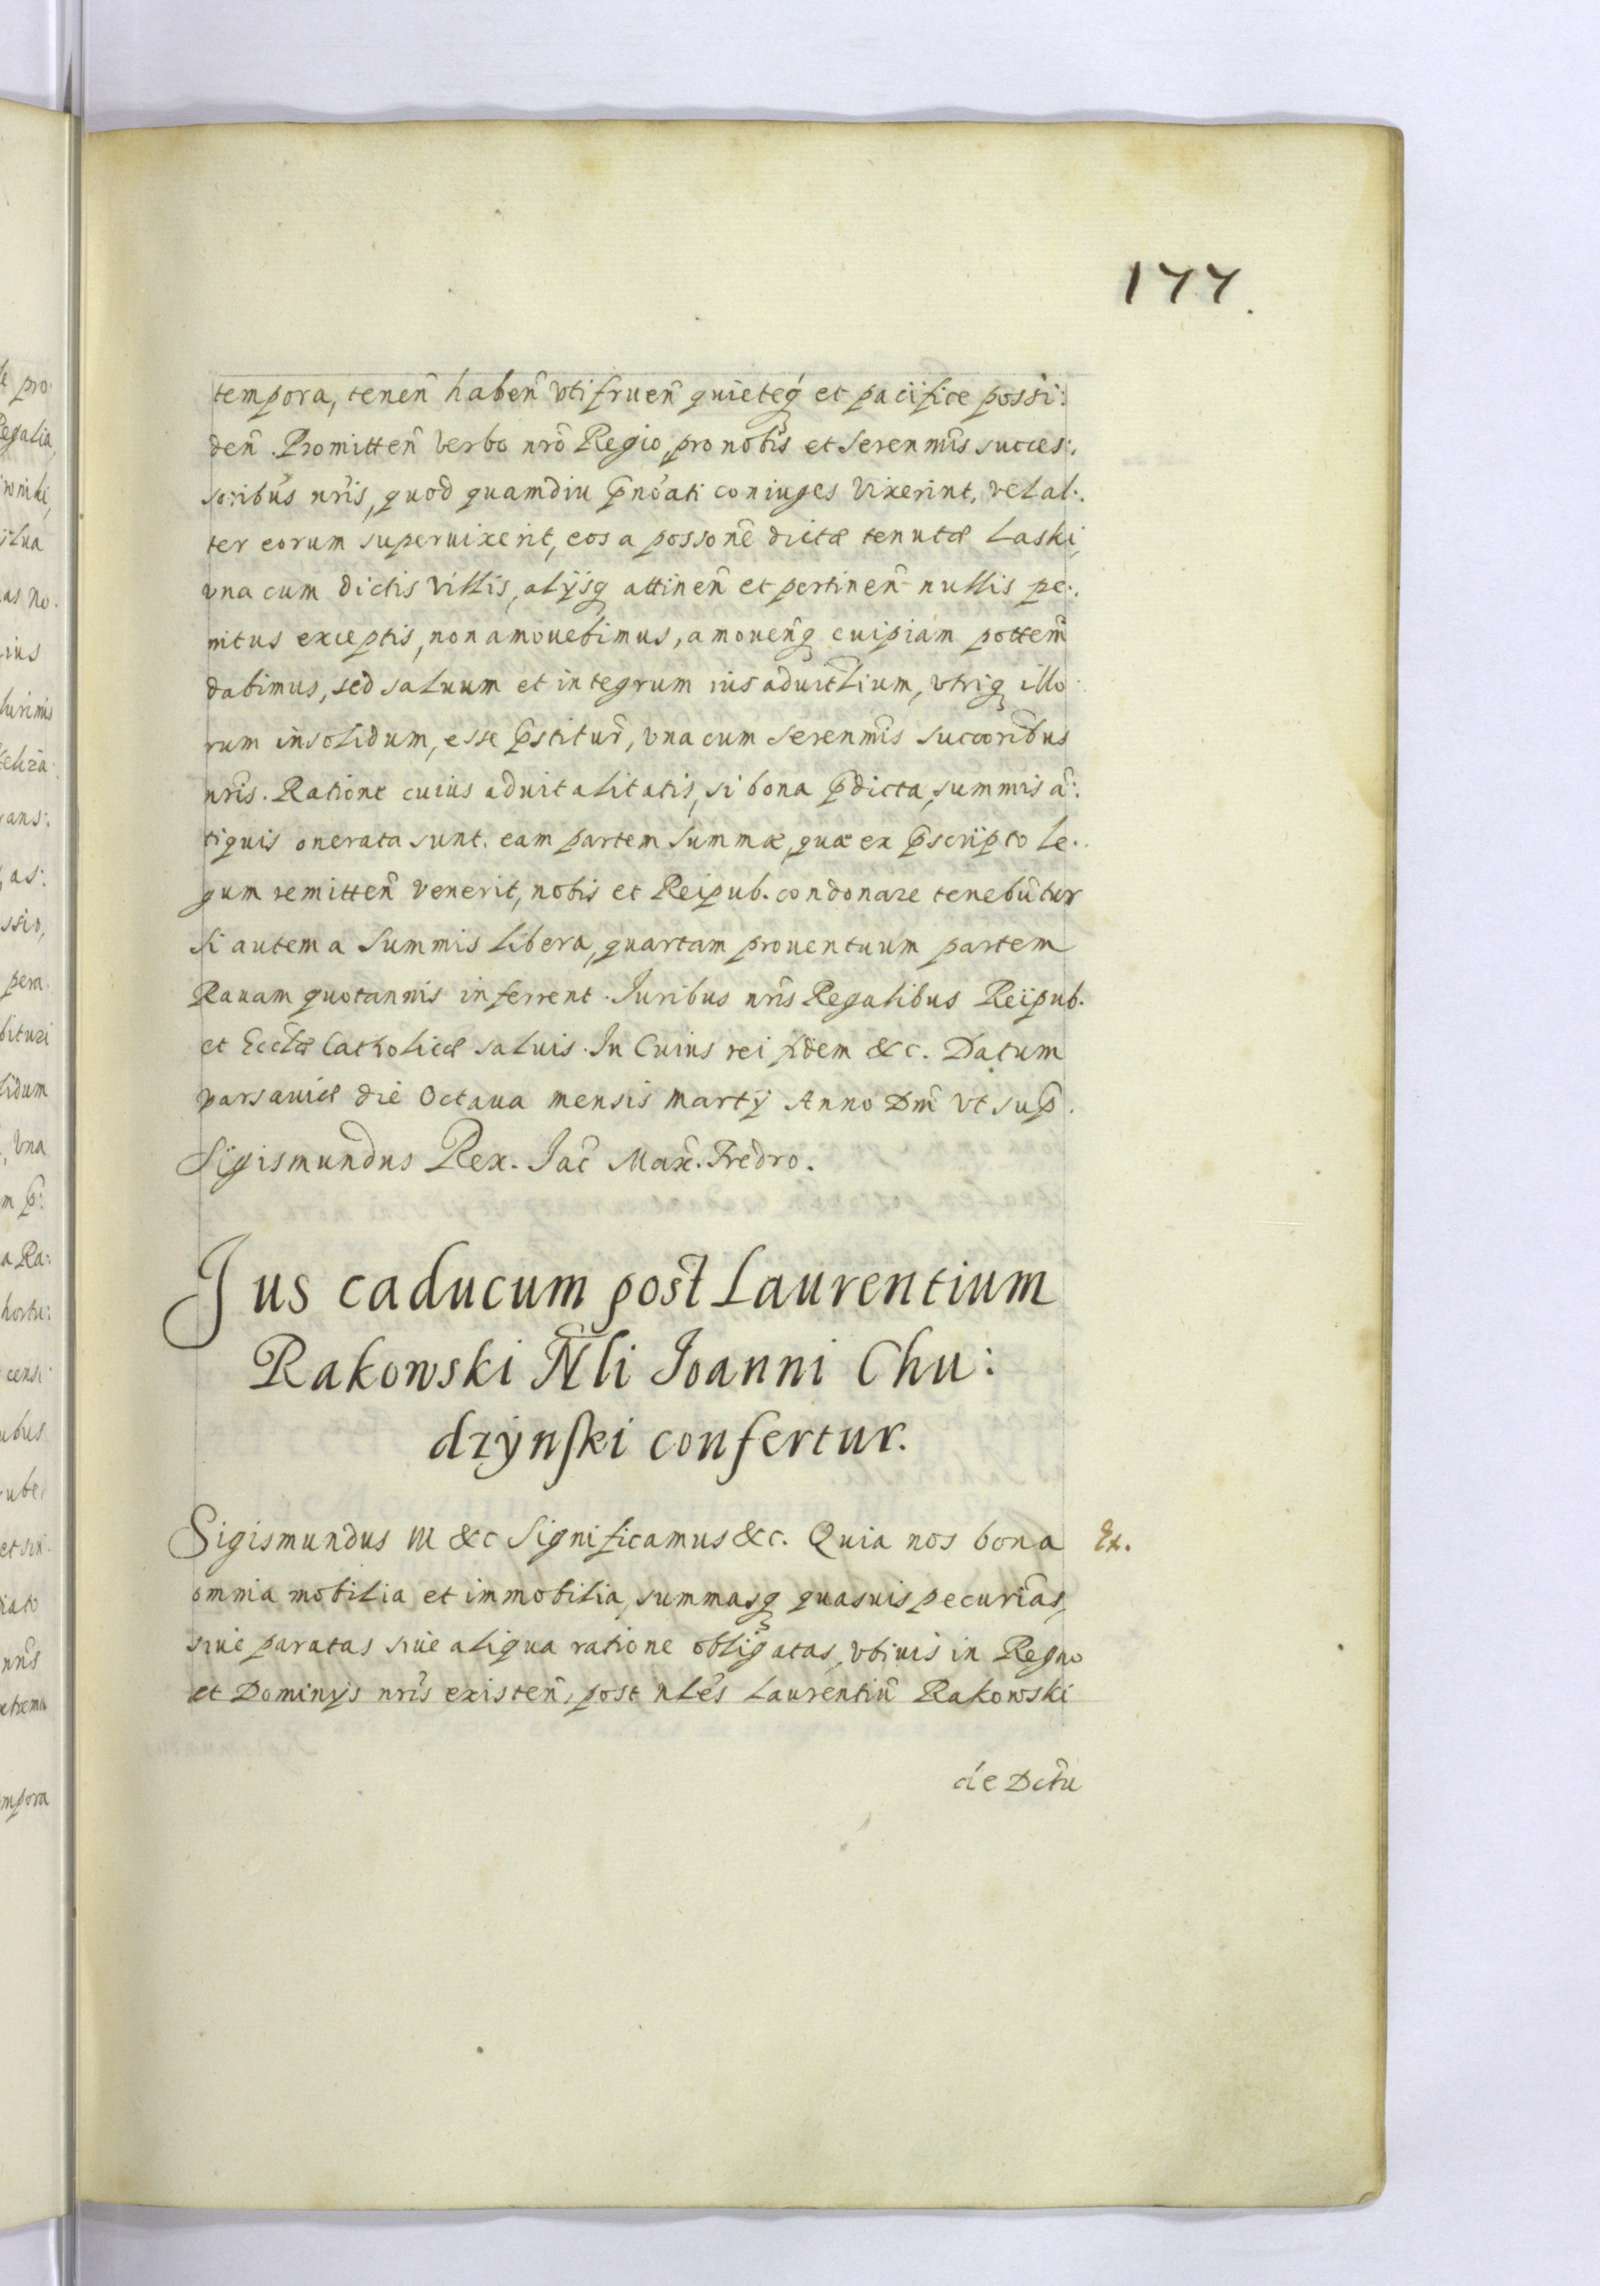 177.
tempora, tenen̄ haben̄ vtifruen̄ quieteq́ et pacifice possi:
den̄. Promitten̄ verbo nrō Regio, pro nobis et Serenmīs succes:
soribus nrīs, quod quamdiu p̄noāti coniuges Vixerint, vel al:
ter eorum superuixerit, eos a possonē dictæ tenutæ Laski,
vna cum dictis Villis, alijsq attinen̄ et pertinen̄ nullis pe:
nitus exceptis, non amouebimus, amouen̄q cuipiam pottem̄
dabimus, sed saluum et integrum ius aduitl̄ium, vtriq illo:
rum insolidum, esse p̄stitur̄, vna cum Serenmīs succorībus
nrīs. Ratione cuius aduitalitatis, si bona p̄dicta, summis ā:
tiquis onerata sunt. eam partem Summæ, quæ ex p̄scripto le:
gum remitten̄ venerit, nobis et Reipub. condonare tenebūtur
Si autem a Summis libera, quartam prouentuum partem
Rauam quotannis inferrent. Iuribus nrīs Regalibus Reipub.
et Ecclǣ Catholicæ saluis. In Cuius rei fidem &c. Datum
varsauiæ die Octaua mensis martij Anno Dm̄ vt sup̄.
Sigismundus Rex. Iac̄ Max̄. Fredro.
Jus caducum post Laurentium
Rakowski N̄li Ioanni Chu:
dzÿnski confertur.
Sigismundus III &c Significamus &c. Quia nos bona
Ex.
omnia mobilia et immobilia, summasq quasuis pecuniās,
siue paratas siue aliqua ratione obligatas, vbiuis in Regno
et Dominijs nrīs existen̄, post nlēs Laurentiū Rakowski